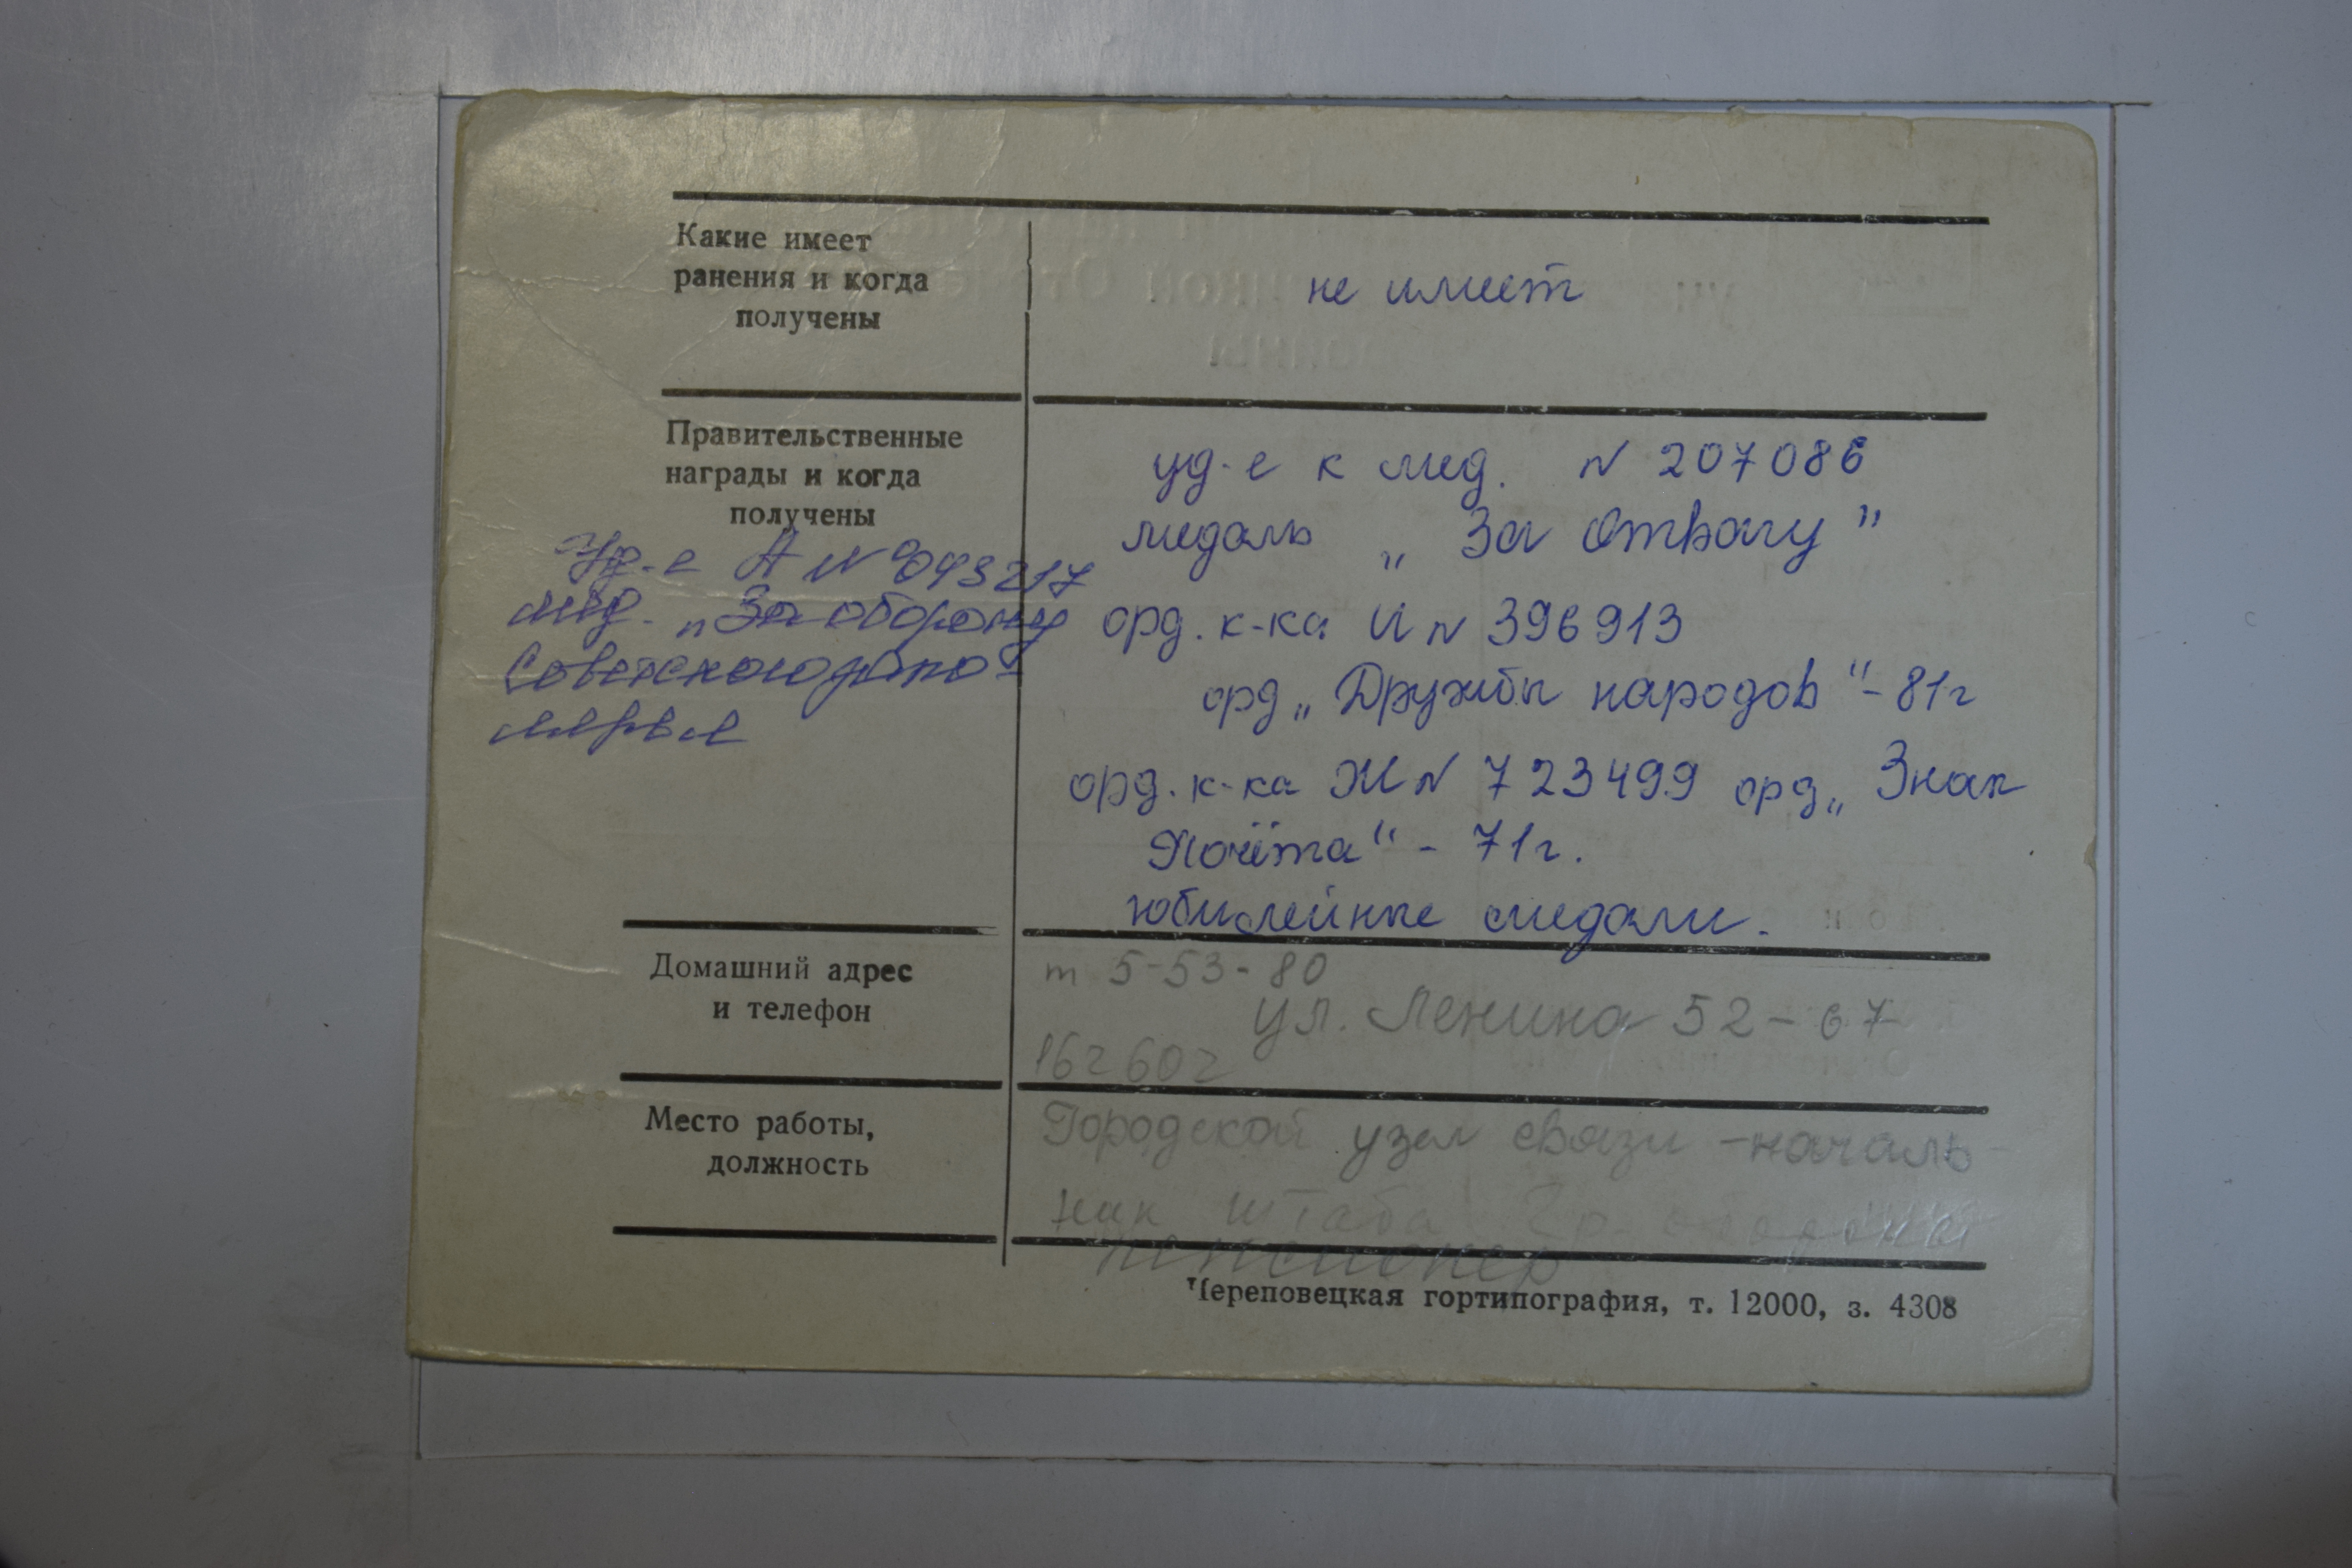 Какие имеет
ранения и когда
получены
не имеет
Правительственные
награды и когда
получены
Уд-е А № 043217
мед. „За оборону
Советского
уд-е к мед. N 207086
медаль „За Отвагу”
орд. к-ка И N 396913
орд „Дружбы народов“ - 81г
орд. к-ка Ж N 723499 орд „Знак
Почёта“ - 71г.
юбилейные медали.
Домашний адрес
и телефон
т 5-53-80
ул. Ленина 52-67
162602
Место работы,
должность
Городской узел связи - началь-
ник штаба гр. обороны
пенсионер
Череповецкая гортипография, т. 12000, з. 4308